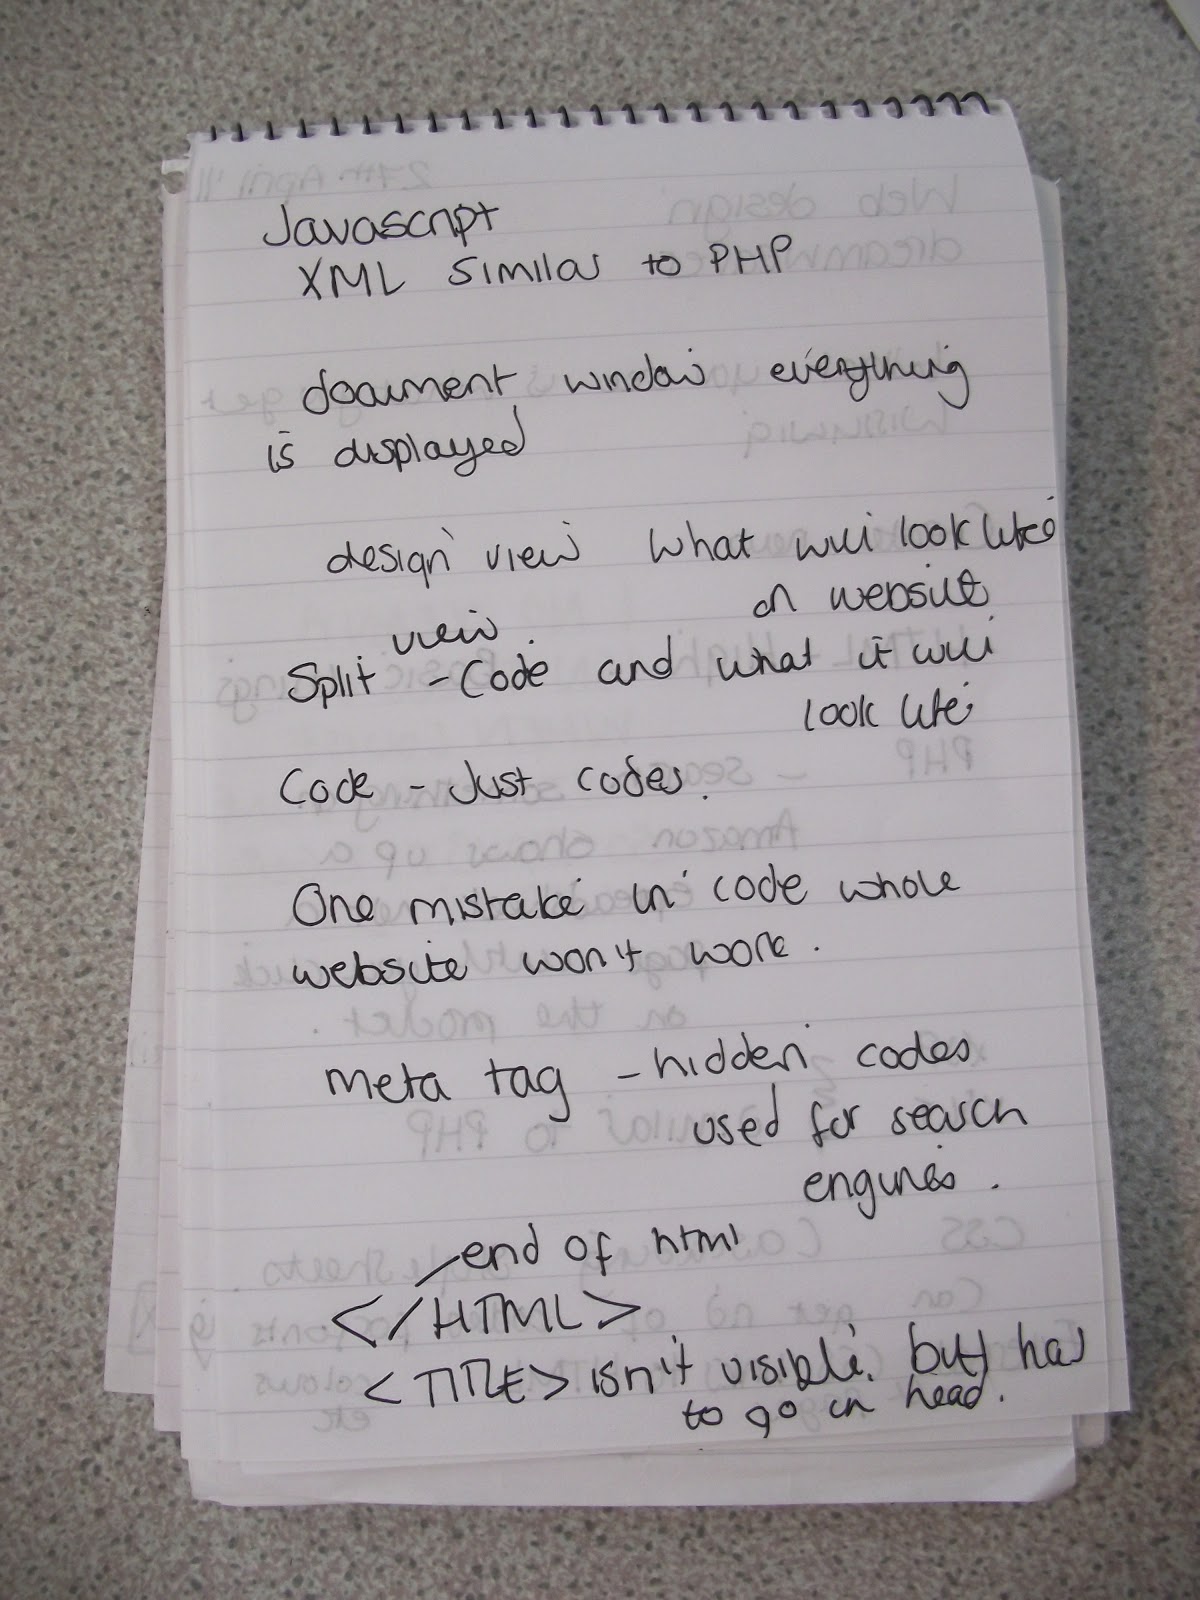 Javascript
XML similar to PHP
document window everything
is displayed
design view what will look like
on website
view.
Split - Code and what it will
look like
Code - Just codes.
One mistake in code whole
website won't work.
meta tag - hidden codes
used for search
engines.
end of html
</HTML>
<TITLE> isn't visible, but has
to go in head.